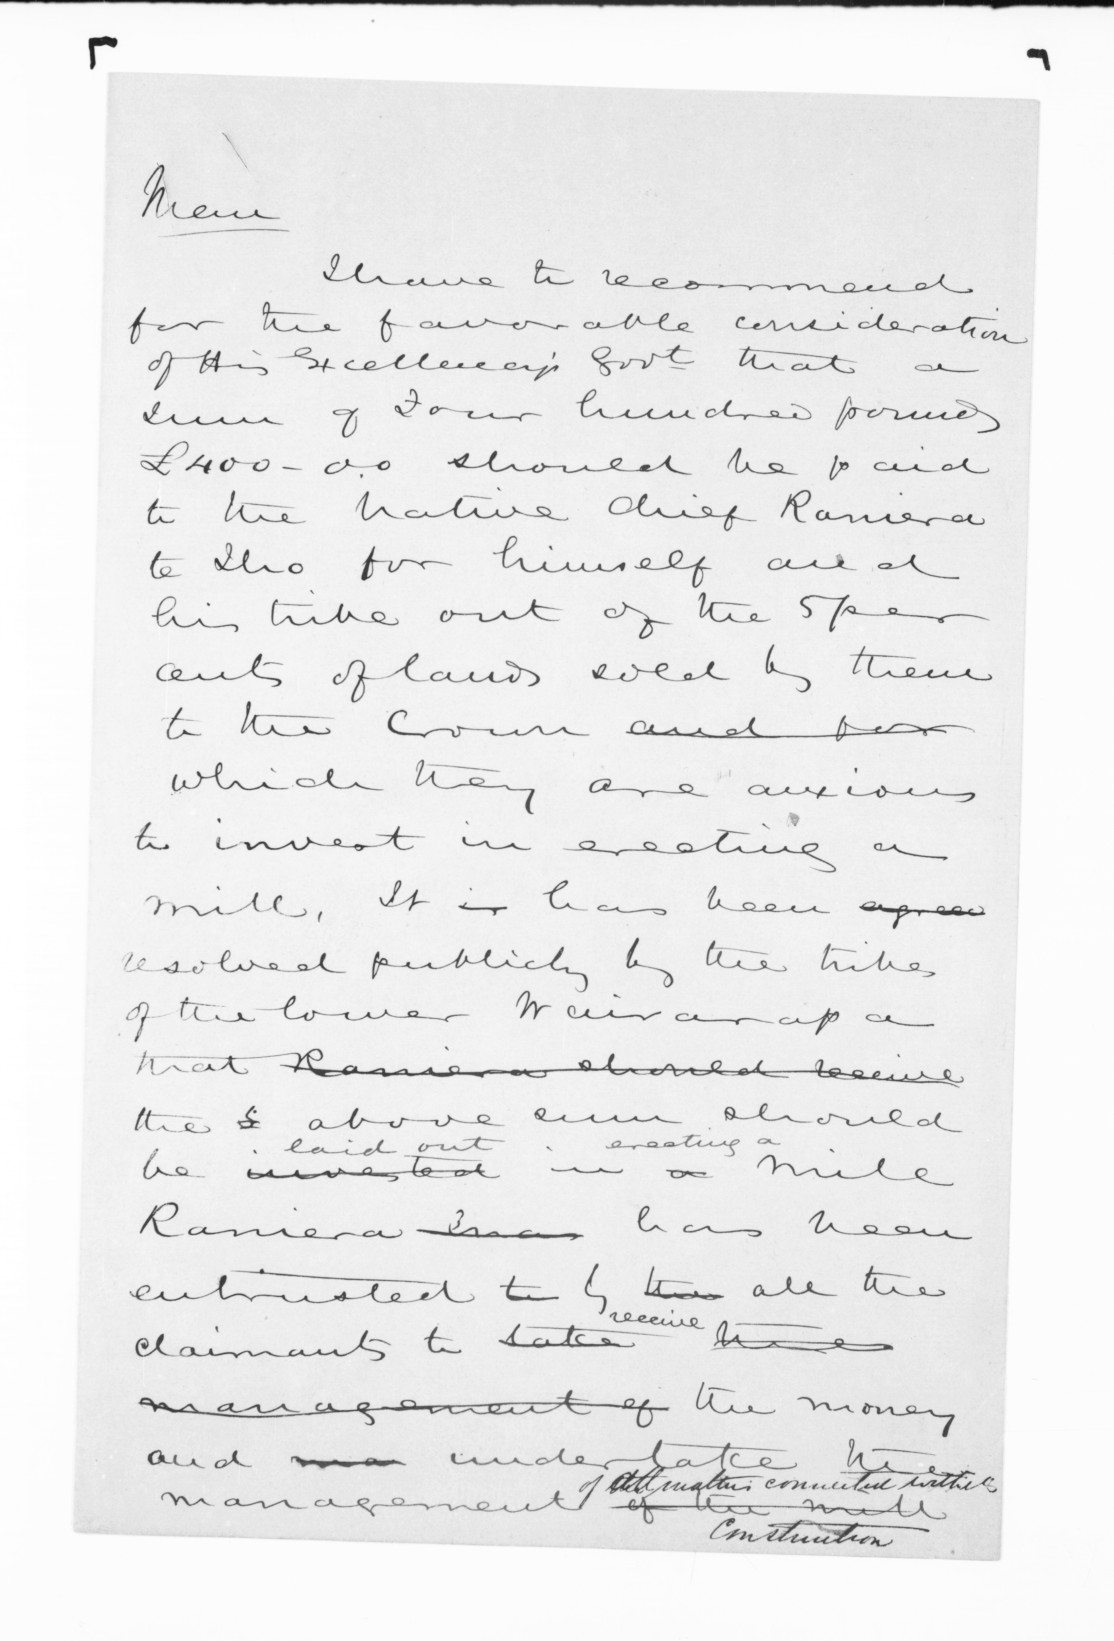 Mem
I have to recommend
for the favorable consideration
of His Excellency's Govt that a
Sum of Four hundred pounds
£400-0.0 should be paid
to the Native Chief Raniera
to Iho for himself and
his tribe out of the 5 per
cents of lands sold by them
to the Crown and for
which they are anxious
to invest in erecting a
mill, It is has been agreed
resolved publicly by the tribes
of the lower Wairarapa
that Raniera should receive
the s above sum should
laid out erecting a
be invested in a Mill
Raniera has been
entrusted to by the all the
receive
claimants to take the
management of the money
and ma undertake the
of All matters connected with its
management of the mill
Construction